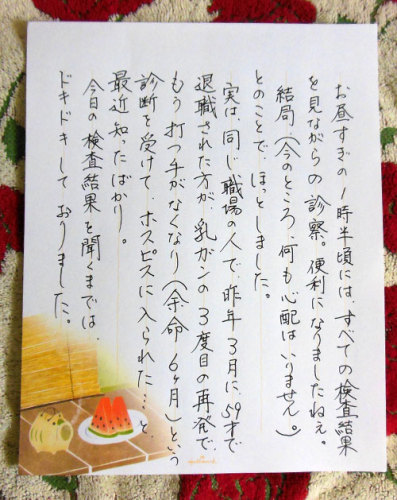 お昼すぎの1時半頃には、すべての検査結果
を見ながらの診察。便利になりましたねぇ。
結局、(今のところ、何も心配はいりません。)
とのことで、ほっとしました。
実は、同じ職場の人で、昨年3月に、59才で
退職された方が、乳ガンの3度目の再発で、
もう打つ手がなくなり(余命6ヶ月)という
診断を受けて、ホスピスに入られた…と、
最近知ったばかり。
今日の検査結果を聞くまでは、
ドキドキしておりました。